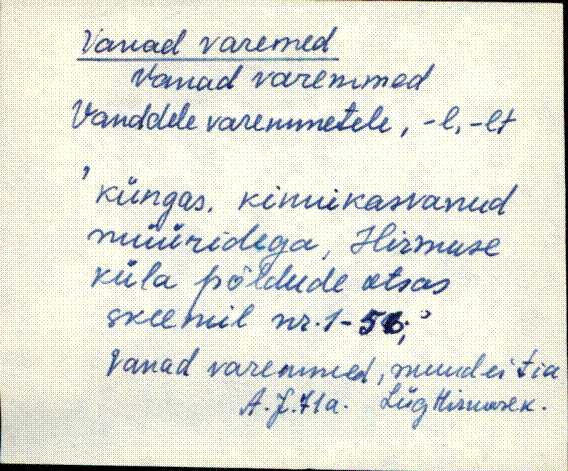 Vanad varemed
Vanad varemmed
Vanddele varemmetele, -l, -lt
'küngas, kinnikasvanud
müüridega, Hirmuse
küla põldude otsas
skeemil nr. 1-56;'
Vanad varemmed, muud ei tia
A. J. 71a. Lüg Hirmuse k.